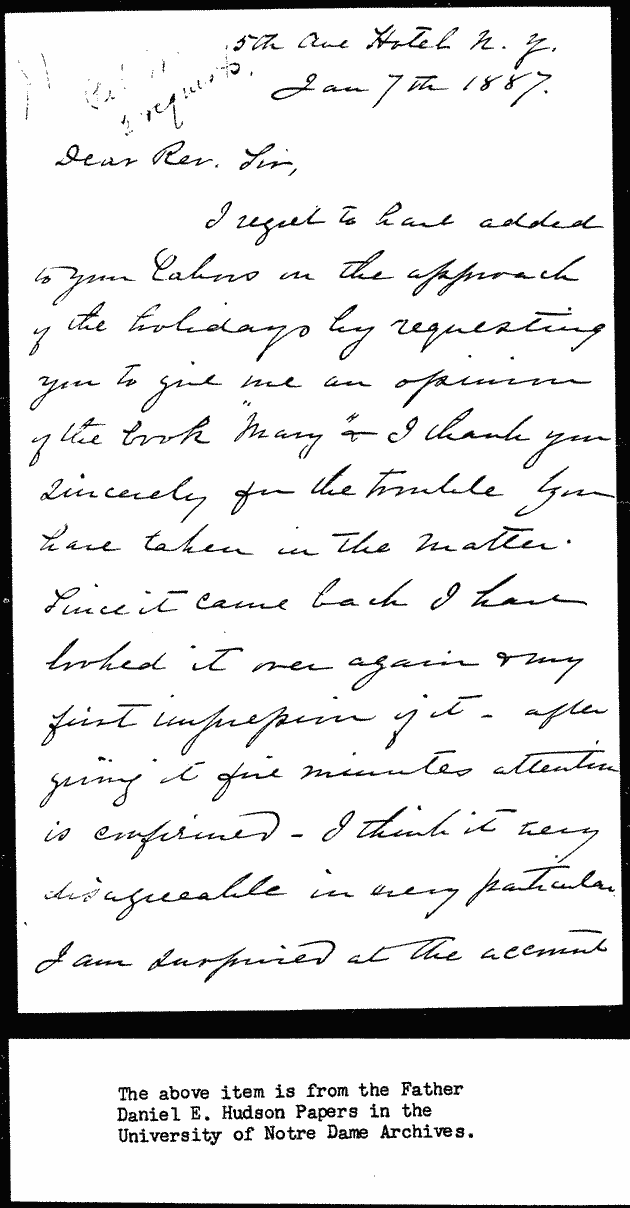 5th Ave Hotel N. Y.
Jan 7th 1887.
requests.
Dear Rev. Sir,
I regret to have added
to your labors on the approach
of the holidays by requesting
you to give me an opinion
of the book "Mary" & I thank you
sincerely for the trouble you
have taken in the matter.
Since it came back I have
looked it over again & my
first impression of it - after
giving it five minutes attention
is confirmed - I think it very
disagreeable in every particular
I am surprised at the account
The above item is from the Father
Daniel E. Hudson Papers in the
University of Notre Dame Archives.